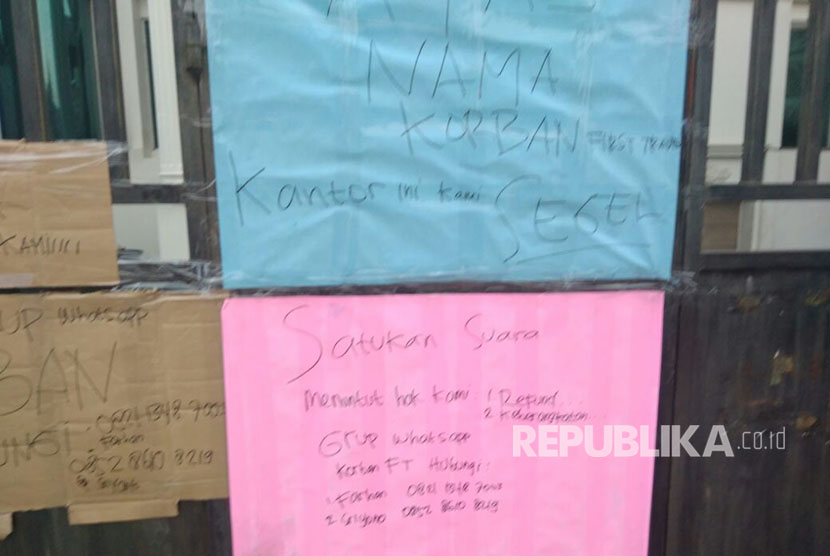 ATAS
NAMA
KORBAN FIRST TRAVEL
Kantor ini kami SEGEL
KAMI!!!
UP Whatsapp
BAN
UNGI
0821 1348 7003
Farhan
0852 8610 8219
Satukan Suara
Menuntut hak kami: 1 Refund...
2 Keberangkatan...
Grup whatsapp
Korban FT Hubungi:
1. Farhan 0821 1348 7003
2 0852 8610 8219
REPUBLIKA.co.id